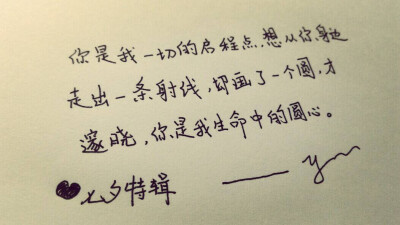 你是我一切的启程点,想从你身边
走出一条射线,却画了一个圆,才
邃晓,你是我生命中的圆心。
七夕特辑 —— ym